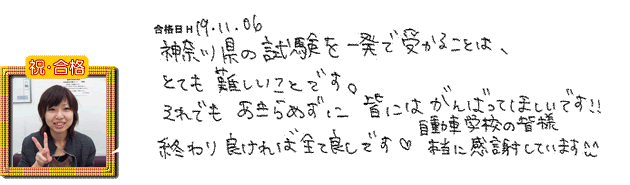 合格日 H19.11.06
神奈川県の試験を一発で受かることは、
とても難しいことです。
それでもあきらめずに 皆にはがんばってほしいです!!
終わり良ければ全て良しです♡
自動車学校の皆様
本当に感謝しています^^
祝・合格